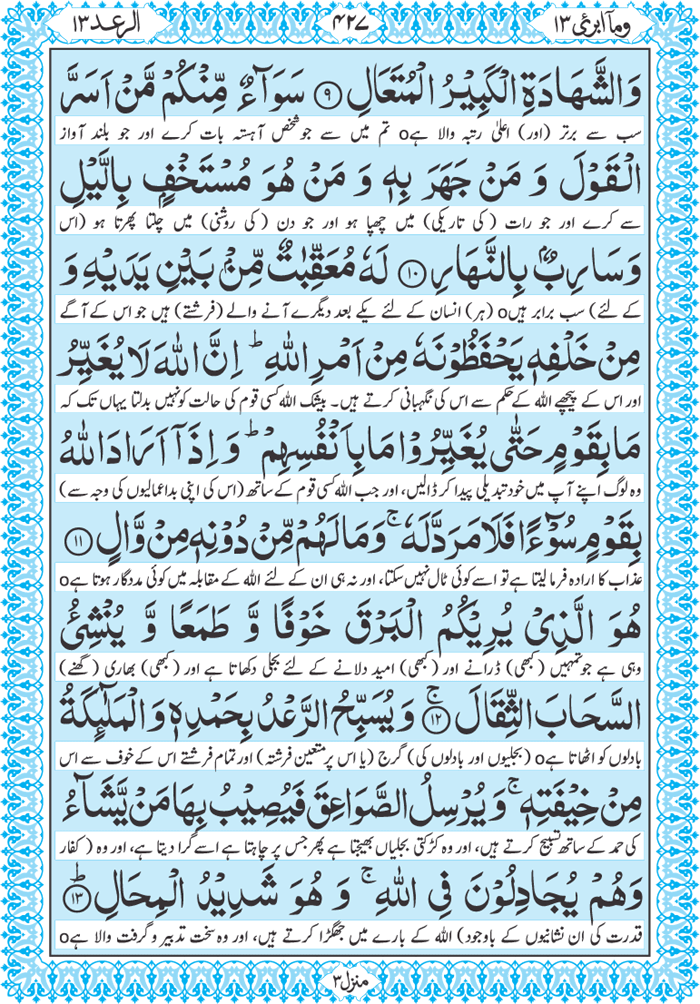 وما ابرئ ١٣ ۴۲۷ الرعد ١٣
وَالشَّهَادَةِ الْكَبِيْرُ الْمُتَعَالِ ۹ سَوَآءٌ مِّنْكُمْ مَّنْ اَسَرَّ
سب سے برتر (اور) اعلیٰ رتبہ والا ہےo تم میں سے جو شخص آہستہ بات کرے اور جو بلند آواز
الْقَوْلَ وَ مَنْ جَهَرَ بِهٖ وَ مَنْ هُوَ مُسْتَخْفٍۭ بِالَّيْلِ
سے کرے اور جو رات (کی تاریکی) میں چھپا ہو اور جو دن (کی روشنی) میں چلتا پھرتا ہو (اس
وَسَارِبٌۢ بِالنَّهَارِ ۱۰ لَهٗ مُعَقِّبٰتٌ مِّنْۢ بَيْنِ يَدَيْهِ وَ
کے لئے) سب برابر ہیںo (ہر) انسان کے لئے یکے بعد دیگرے آنے والے (فرشتے) ہیں جو اس کے آگے
مِنْ خَلْفِهٖ يَحْفَظُوْنَهٗ مِنْ اَمْرِ اللّٰهِ ؕ اِنَّ اللّٰهَ لَا يُغَيِّرُ
اور اس کے پیچھے اللہ کے حکم سے اس کی نگہبانی کرتے ہیں۔ بیشک اللہ کسی قوم کی حالت کو نہیں بدلتا یہاں تک کہ
مَا بِقَوْمٍ حَتّٰى يُغَيِّرُوْا مَا بِاَنْفُسِهِمْ ؕ وَ اِذَآ اَرَادَ اللّٰهُ
وہ لوگ اپنے آپ میں خود تبدیلی پیدا کر ڈالیں، اور جب اللہ کسی قوم کے ساتھ (اس کی اپنی بداعمالیوں کی وجہ سے)
بِقَوْمٍ سُوْٓءًا فَلَا مَرَدَّ لَهٗ ۚ وَمَا لَهُمْ مِّنْ دُوْنِهٖ مِنْ وَّالٍ ۱۱
عذاب کا ارادہ فرما لیتا ہے تو اسے کوئی ٹال نہیں سکتا، اور نہ ہی ان کے لئے اللہ کے مقابلہ میں کوئی مددگار ہوتا ہےo
هُوَ الَّذِيْ يُرِيْكُمُ الْبَرْقَ خَوْفًا وَّ طَمَعًا وَّ يُنْشِئُ
وہی ہے جو تمہیں (کبھی) ڈرانے اور (کبھی) امید دلانے کے لئے بجلی دکھاتا ہے اور (کبھی) بھاری (گھنے)
السَّحَابَ الثِّقَالَ ۚ ۱۲ وَيُسَبِّحُ الرَّعْدُ بِحَمْدِهٖ وَالْمَلٰٓئِكَةُ
بادلوں کو اٹھاتا ہےo (بجلیوں اور بادلوں کی) گرج (یا اس پر متعین فرشتہ) اور تمام فرشتے اس کے خوف سے اس
مِنْ خِيْفَتِهٖ ۚ وَيُرْسِلُ الصَّوَاعِقَ فَيُصِيْبُ بِهَا مَنْ يَّشَآءُ
کی حمد کے ساتھ تسبیح کرتے ہیں، اور وہ کڑکتی بجلیاں بھیجتا ہے پھر جس پر چاہتا ہے اسے گرا دیتا ہے، اور وہ (کفار
وَهُمْ يُجَادِلُوْنَ فِي اللّٰهِ ۚ وَ هُوَ شَدِيْدُ الْمِحَالِ ؕ ۱۳
قدرت کی ان نشانیوں کے باوجود) اللہ کے بارے میں جھگڑا کرتے ہیں، اور وہ سخت تدبیر و گرفت والا ہےo
منزل ۳